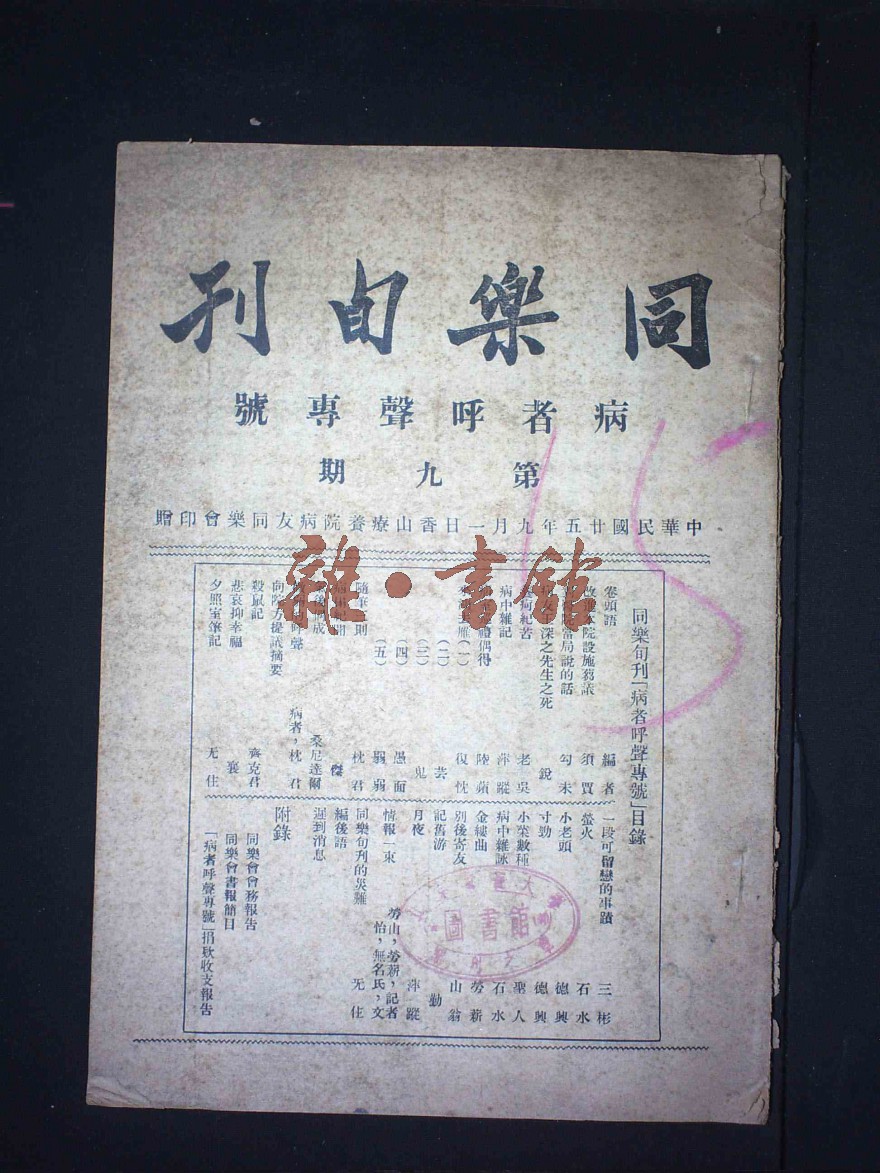 同樂旬刊
病者呼聲專號
第九期
中華民國廿五年九月一日香山療養院病友同樂會印贈
同樂旬刊「病者呼聲專號」目錄
卷頭語 編者
院設施芻議 須賈
當局說的話 勾未
深之先生之死 銳
病紀苦 老吳
病中雜記 萍蹤
偶得 陸蘋
(一) 復忱
(二) 芸
(三) 鬼
(四) 愚面
(五) 羸弱
隨筆 則 枕君
傑
成 桑尼達爾
呼聲 病者,枕君
向院方提議摘要
殺鼠記 齊克君
悲哀抑幸福 襄
夕照室筆記 无住
一段可留戀的事蹟 三彬
螢火 石水
小老頭 德興
寸勁 德興
小菜數種 聖人
病中雜詠 石水
金縷曲 勞薪
別後寄友 山翁
記舊游 勤
月夜 萍蹤
情報一束 勞山,勞薪,記者怡,無名氏,文
同樂旬刊的災難 无住
編後語
遲到消息
附錄
同樂會會務報告
同樂會書報簡目
「病者呼聲專號」捐欵收支報告
雜·書館
圖書館
15